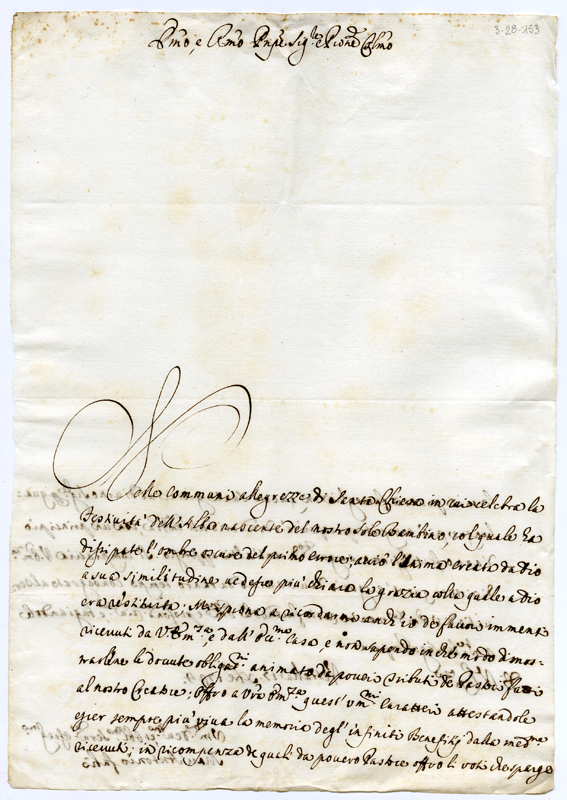 3-28-153
Em̃o, e Rm̃o Pnp̃e Sig.re e Pr̃one Col̃mo
Nelle communi allegrezze di Santa Chiesa in cui celebra la
Festiuità dell'Alba nascente del nostro Sole Bambino, col quale ha
dissipate l'ombre oscure del primo errore; acciò l'anima creata da Dio
a sua similitudine uedesse più chiara la grazia colla quale a Dio
era restituita; Mi sprona a ricordarmi anch'io de fauori immensi
riceuuti da V. Em.za, e dall' Ecc.ma Casa, e non sapendo in che modo dimos-
trarlene le douute obligaz.ni animato da poueri tributi de Pastori
al nostro Creatore; offro a Vr̃a Em.za quest' um.mi Caratteri attestandole
esser sempre più uiua la memoria degl' infiniti Benefizij dalla med.ma
riceuuti; in ricompenza de quali da pouero Pastore offro li uoti che sparge